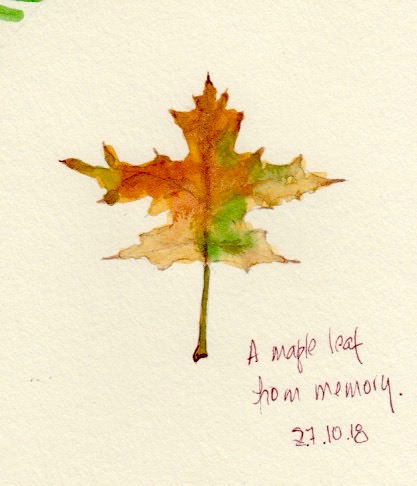 A maple leaf
from memory.
27.10.18